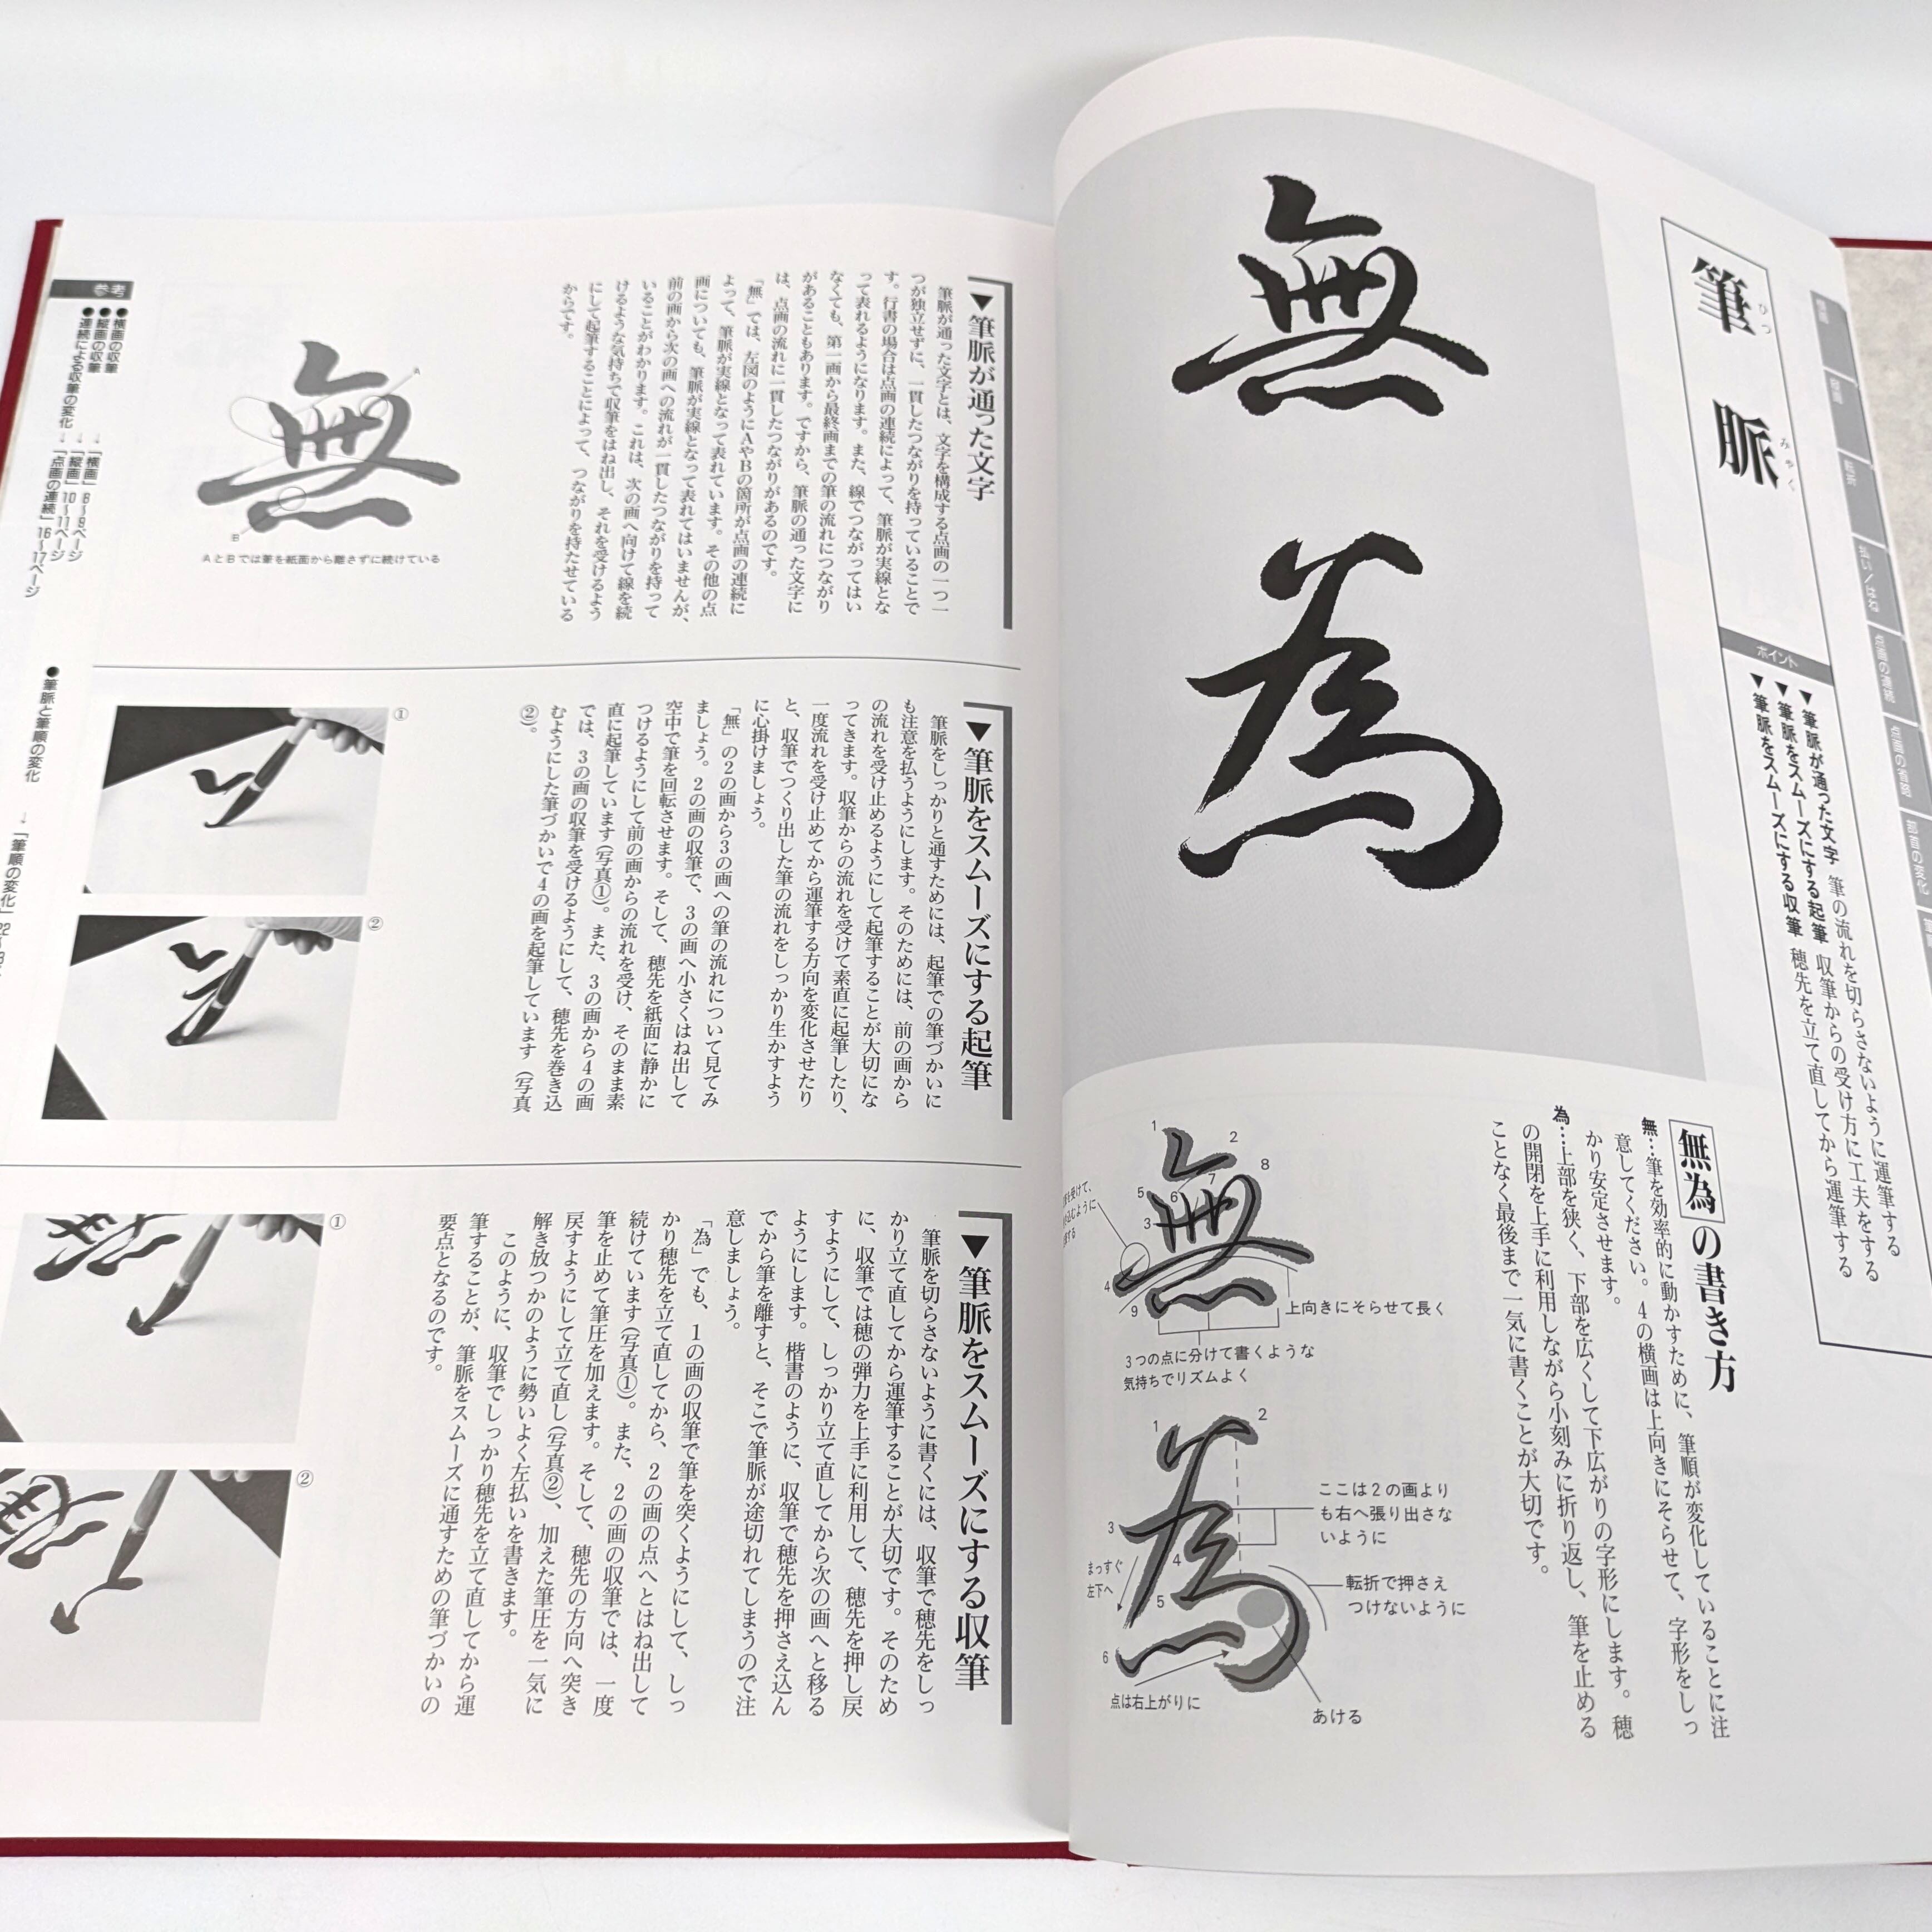 筆脈
ひつ
みゃく
ポイント
▼筆脈が通った文字 筆の流れを切らさないように運筆する
▼筆脈をスムーズにする起筆 収筆からの受け方に工夫をする
▼筆脈をスムーズにする収筆 穂先を立て直してから運筆する
転折
払い／はね
点画の連続
点画の省略
部首の変化
無為
無為の書き方
無…筆を効率的に動かすために、筆順が変化していることに注
意してください。4の横画は上向きにそらせて、字形をしっ
かり安定させます。
為…上部を狭く、下部を広くして下広がりの字形にします。穂
の開閉を上手に利用しながら小刻みに折り返し、筆を止める
ことなく最後まで一気に書くことが大切です。
1
2
8
7
6
5
3
4
9
上向きにそらせて長く
3つの点に分けて書くような
気持ちでリズムよく
1
2
3
4
5
6
ここは2の画より
も右へ張り出さな
いように
転折で押さえ
つけないように
まっすぐ
左下へ
点は右上がりに
あける
▼筆脈が通った文字
筆脈が通った文字とは、文字を構成する点画の一つ一
つが独立せずに、一貫したつながりを持っていることで
す。行書の場合は点画の連続によって、筆脈が実線とな
って表れるようになります。また、線でつながってはい
なくても、第一画から最終画までの筆の流れにつながり
があることもあります。ですから、筆脈の通った文字に
は、点画の流れに一貫したつながりがあるのです。
「無」では、左図のようにAやBの箇所が点画の連続に
よって、筆脈が実線となって表れています。その他の点
画についても、筆脈が実線となって表れてはいませんが、
前の画から次の画への流れが一貫したつながりを持って
いることがわかります。これは、次の画へ向けて線を続
けるような気持ちで収筆をはね出し、それを受けるよう
にして起筆することによって、つながりを持たせている
からです。
A
B
AとBでは筆を紙面から離さずに続けている
▼筆脈をスムーズにする起筆
筆脈をしっかりと通すためには、起筆での筆づかいに
も注意を払うようにします。そのためには、前の画から
の流れを受け止めるようにして起筆することが大切にな
ってきます。収筆からの流れを受けて素直に起筆したり、
一度流れを受け止めてから運筆する方向を変化させたり
と、収筆でつくり出した筆の流れをしっかり生かすよう
に心掛けましょう。
「無」の2の画から3の画への筆の流れについて見てみ
ましょう。2の画の収筆で、3の画へ小さくはね出して
空中で筆を回転させます。そして、穂先を紙面に静かに
つけるようにして前の画からの流れを受け、そのまま素
直に起筆しています(写真①)。また、3の画から4の画
では、3の画の収筆を受けるようにして、穂先を巻き込
むようにした筆づかいで4の画を起筆しています(写真
②)。
①
②
▼筆脈をスムーズにする収筆
筆脈を切らさないように書くには、収筆で穂先をしっ
かり立て直してから運筆することが大切です。そのため
に、収筆では穂の弾力を上手に利用して、穂先を押し戻
すようにして、しっかり立て直してから次の画へと移る
ようにします。楷書のように、収筆で穂先を押さえ込ん
でから筆を離すと、そこで筆脈が途切れてしまうので注
意しましょう。
「為」でも、1の画の収筆で筆を突くようにして、しっ
かり穂先を立て直してから、2の画の点へとはね出して
続けています(写真①)。また、2の画の収筆では、一度
筆を止めて筆圧を加えます。そして、穂先の方向へ突き
戻すようにして立て直し(写真②)、加えた筆圧を一気に
解き放つかのように勢いよく左払いを書きます。
このように、収筆でしっかり穂先を立て直してから運
筆することが、筆脈をスムーズに通すための筆づかいの
要点となるのです。
①
②
参考
●横画の収筆 →「横画」8〜9ページ
●縦画の収筆 →「縦画」10〜11ページ
●連続による収筆の変化 →「点画の連続」16〜17ページ
●筆脈と筆順の変化 →「筆順の変化」